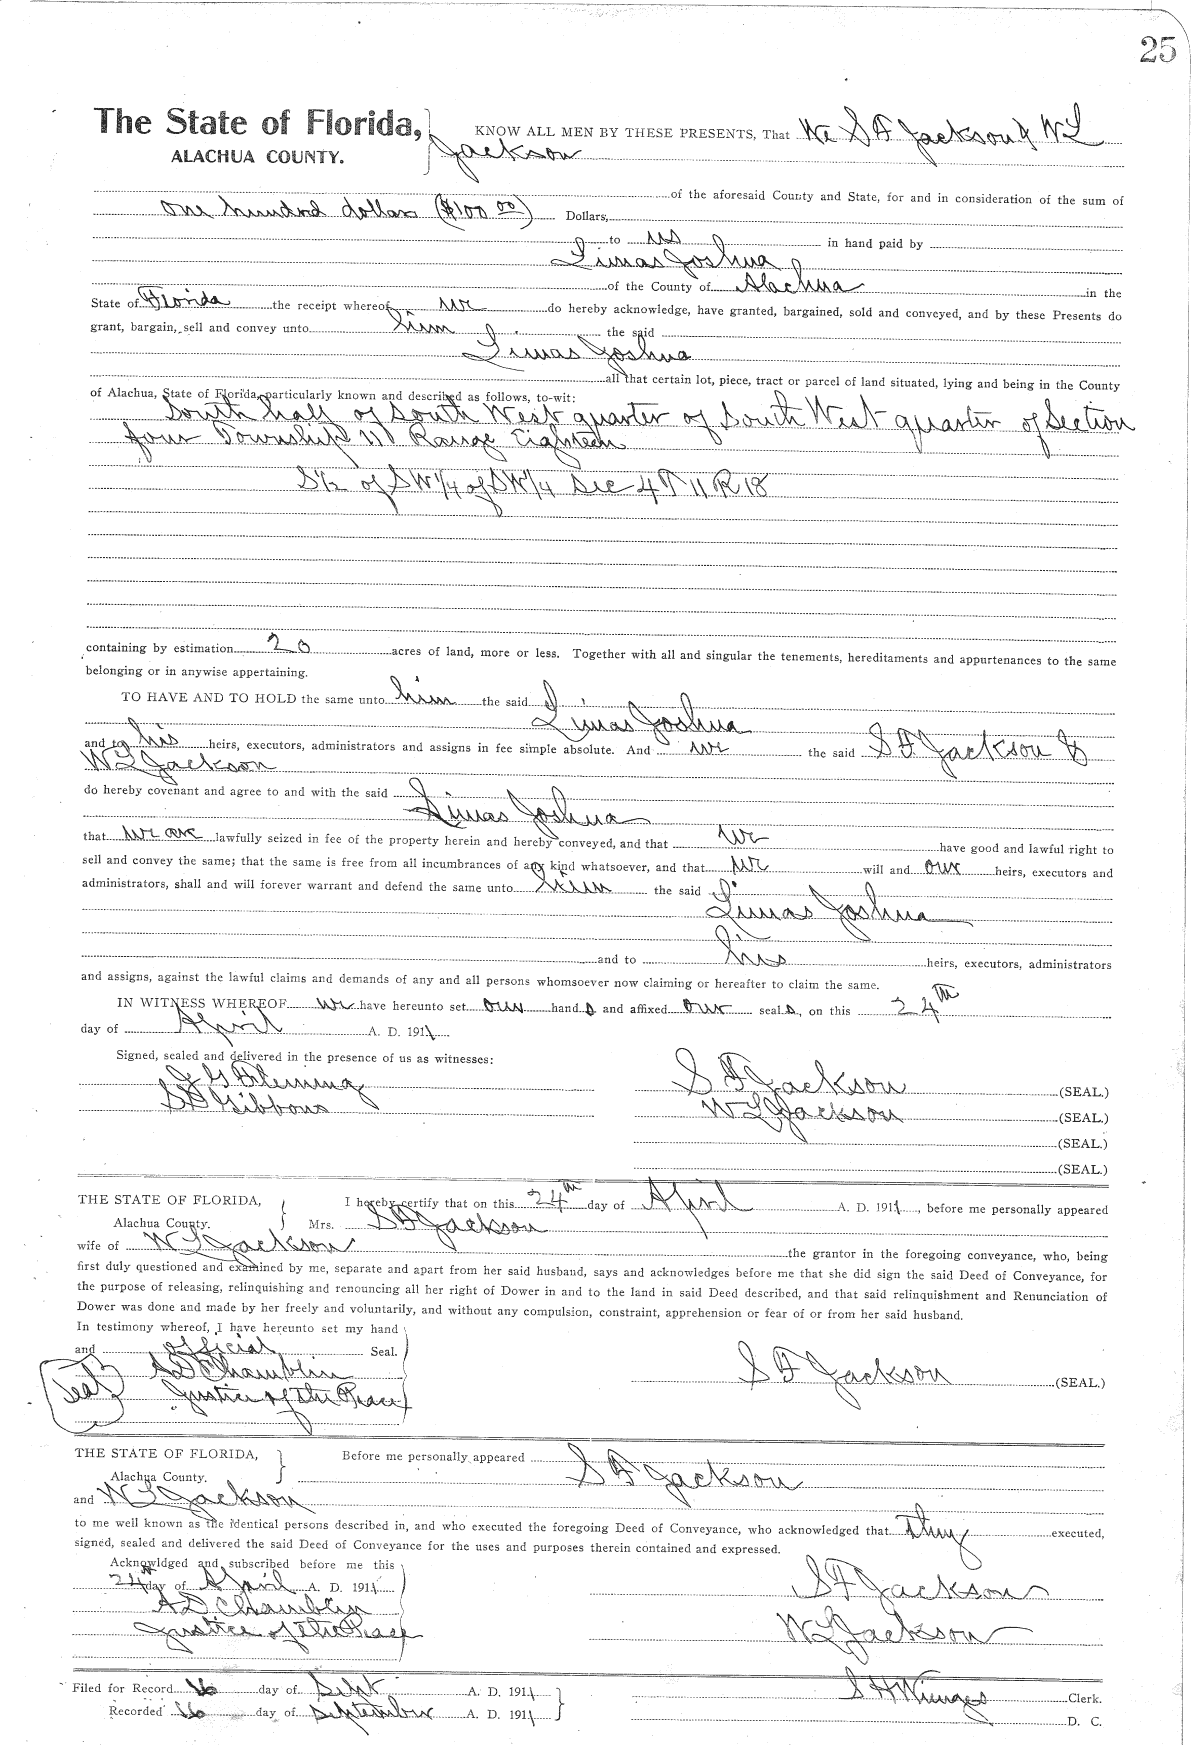 25
The State of Florida, KNOW ALL MEN BY THESE PRESENTS, That We S F Jackson & W L
ALACHUA COUNTY. Jackson
of the aforesaid County and State, for and in consideration of the sum of
One hundred dollars ($100 00) Dollars,
to us in hand paid by
Limas Joshua
of the County of Alachua in the
State of Florida the receipt whereof we do hereby acknowledge, have granted, bargained, sold and conveyed, and by these Presents do
grant, bargain, sell and convey unto him the said
Limas Joshua
all that certain lot, piece, tract or parcel of land situated, lying and being in the County
of Alachua, State of Florida, particularly known and described as follows, to-wit:
South half of South West quarter of South West quarter of Section
four Township 11 Range Eighteen
S½ of SW¼ of SW¼ Sec 4 T 11 R 18
containing by estimation 20 acres of land, more or less. Together with all and singular the tenements, hereditaments and appurtenances to the same
belonging or in anywise appertaining.
TO HAVE AND TO HOLD the same unto him the said
Limas Joshua
and to his heirs, executors, administrators and assigns in fee simple absolute. And we the said S F Jackson &
W L Jackson
do hereby covenant and agree to and with the said
Limas Joshua
that we are lawfully seized in fee of the property herein and hereby conveyed, and that we have good and lawful right to
sell and convey the same; that the same is free from all incumbrances of any kind whatsoever, and that we will and our heirs, executors and
administrators, shall and will forever warrant and defend the same unto him the said
Limas Joshua
and to his heirs, executors, administrators
and assigns, against the lawful claims and demands of any and all persons whomsoever now claiming or hereafter to claim the same.
IN WITNESS WHEREOF we have hereunto set our hands and affixed our seals, on this 24th
day of April A. D. 1911
Signed, sealed and delivered in the presence of us as witnesses:
J G Fleming S F Jackson (SEAL.)
Gibbons W L Jackson (SEAL.)
(SEAL.)
(SEAL.)
THE STATE OF FLORIDA, I hereby certify that on this 24th day of April A. D. 1911, before me personally appeared
Alachua County. Mrs. S F Jackson
wife of W L Jackson the grantor in the foregoing conveyance, who, being
first duly questioned and examined by me, separate and apart from her said husband, says and acknowledges before me that she did sign the said Deed of Conveyance, for
the purpose of releasing, relinquishing and renouncing all her right of Dower in and to the land in said Deed described, and that said relinquishment and Renunciation of
Dower was done and made by her freely and voluntarily, and without any compulsion, constraint, apprehension or fear of or from her said husband.
In testimony whereof, I have hereunto set my hand
and official Seal.
A D Chamblin S F Jackson (SEAL.)
Seal Justice of the Peace
THE STATE OF FLORIDA, Before me personally appeared
Alachua County. S F Jackson
and W L Jackson
to me well known as the identical persons described in, and who executed the foregoing Deed of Conveyance, who acknowledged that they executed,
signed, sealed and delivered the said Deed of Conveyance for the uses and purposes therein contained and expressed.
Acknowldged and subscribed before me this
24th day of April A. D. 1911 S F Jackson
A D Chamblin
Justice of the Peace W L Jackson
Filed for Record 16 day of Sept A. D. 1911 S H Wienges Clerk.
Recorded 16 day of September A. D. 1911 D. C.